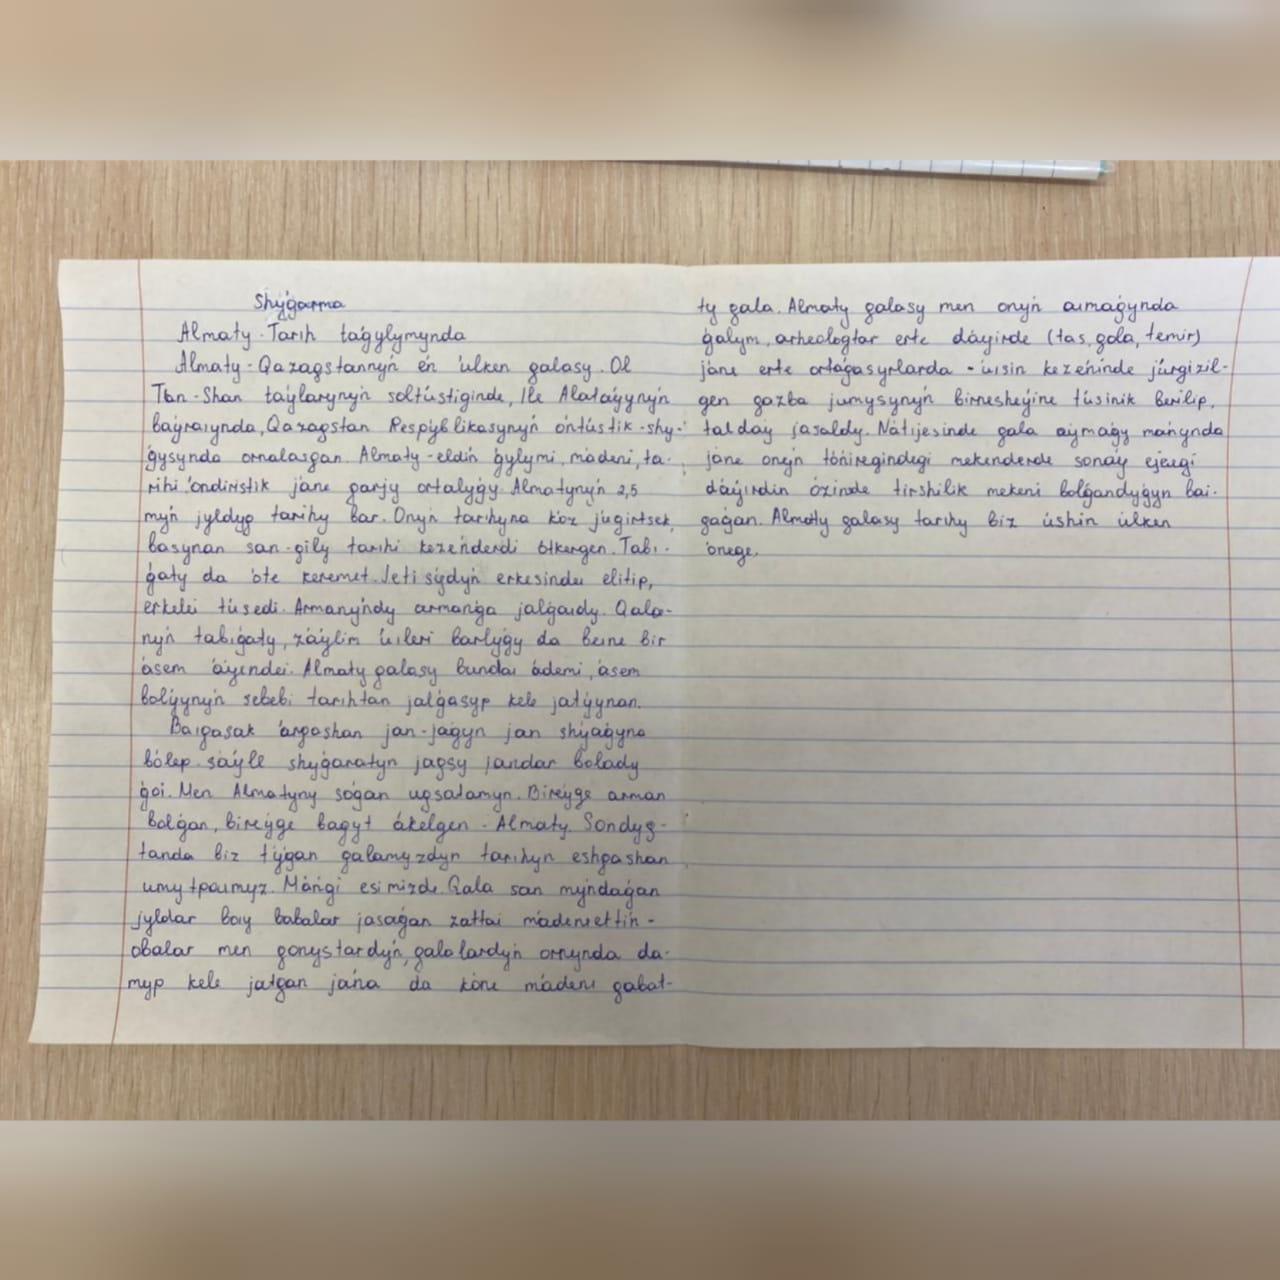 Shyǵarma
Almaty - Tarıh taǵylymynda
Almaty - Qazaqstannyń eń úlken qalasy. Ol
Tıan-Shan taýlarynyń soltústiginde, Ile Alataýynyń
baýraıynda, Qazaqstan Respýblikasynyń óńtústik-shy-
ǵysynda ornalasqan. Almaty - eldiń ǵylymı, mádenı, ta-
rıhı óndiristik jáne qarjy ortalyǵy. Almatynyń 2,5
myń jyldyq tarıhy bar. Onyń tarıhyna kóz júgirtsek,
basynan san-qıly tarıhı kezeńderdi ótkergen. Tabı-
ǵaty da óte keremet. Jeti sýdyń erkesindeı elitip,
erkeleı túsedi. Armanyńdy armanǵa jalǵaıdy. Qala-
nyń tabıǵaty, záýlim úıleri barlyǵy da beıne bir
ásem áýendeı. Almaty qalasy bundaı ádemi, ásem
bolýynyń sebebi tarıhtan jalǵasyp kele jatýynan.
Baıqasak árqashan jan-jaǵyn jan shýaǵyna
bólep sáýle shyǵaratyn jaqsy jandar bolady
ǵoı. Men Almatyny soǵan uqsatamyn. Bireýge arman
bolǵan, bireýge baqyt ákelgen - Almaty. Sondyq-
tanda biz týǵan qalamyzdyn tarıhyn eshqashan
umytpaımyz. Máńgi esimizde. Qala san myńdaǵan
jyldar boıy babalar jasaǵan zattaı mádenıettiń -
obalar men qonystardyń, qalalardyń ornynda da-
myp kele jatqan jáńa da kóne mádenı qabat-
ty qala. Almaty qalasy men onyń aımaǵynda
ǵalym, arheologtar erte dáýirde (tas, qola, temir)
jáne erte ortaǵasyrlarda - úısin kezeńinde júrgizil-
gen qazba jumysynyń birnesheýine túsinik berilip,
taldaý jasaldy. Nátıjesinde qala aýmaǵy mańynda
jáne onyń tóńiregindegi mekenderde sonaý ejelgi
dáýirdiń ózinde tirshilik mekeni bolǵandyǵyn baı-
qaǵan. Almaty qalasy tarıhy biz úshin úlken
ónege.